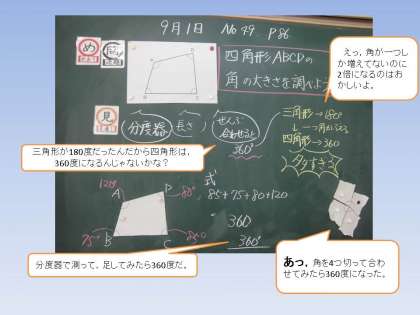 9月1日 No 49 P86
め
四角形ABCDの
角の大きさを調べよう
えっ，角が一つし
か増えてないのに
2倍になるのはお
かしいよ。
見
分度器 長さ ぜんぶ
合わせると
360°
三角形→180°
四角形→360
タタすぎる
三角形が180度だったんだから四角形は，
360度になるんじゃないかな？
式
85+75+80+120
360
360°
A
120°
D
80°
75°
B
C
分度器で測って，足してみたら360度だ。
あっ，角を4つ切って合わ
せてみたら360度になった。